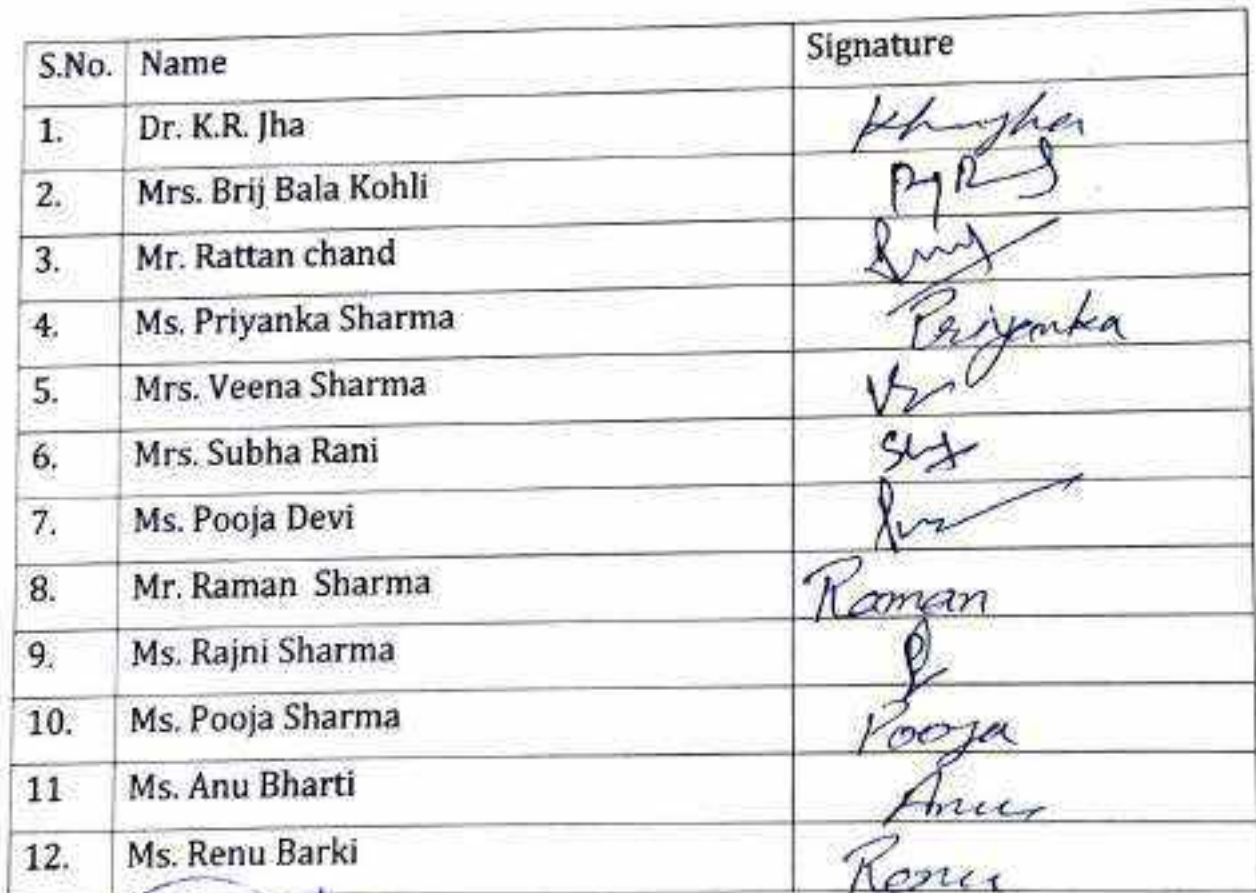 S.No. Name Signature
1. Dr. K.R. Jha
2. Mrs. Brij Bala Kohli
3. Mr. Rattan chand
4. Ms. Priyanka Sharma Priyanka
5. Mrs. Veena Sharma
6. Mrs. Subha Rani
7. Ms. Pooja Devi
8. Mr. Raman Sharma Raman
9. Ms. Rajni Sharma
10. Ms. Pooja Sharma Pooja
11 Ms. Anu Bharti Anu
12. Ms. Renu Barki Renu